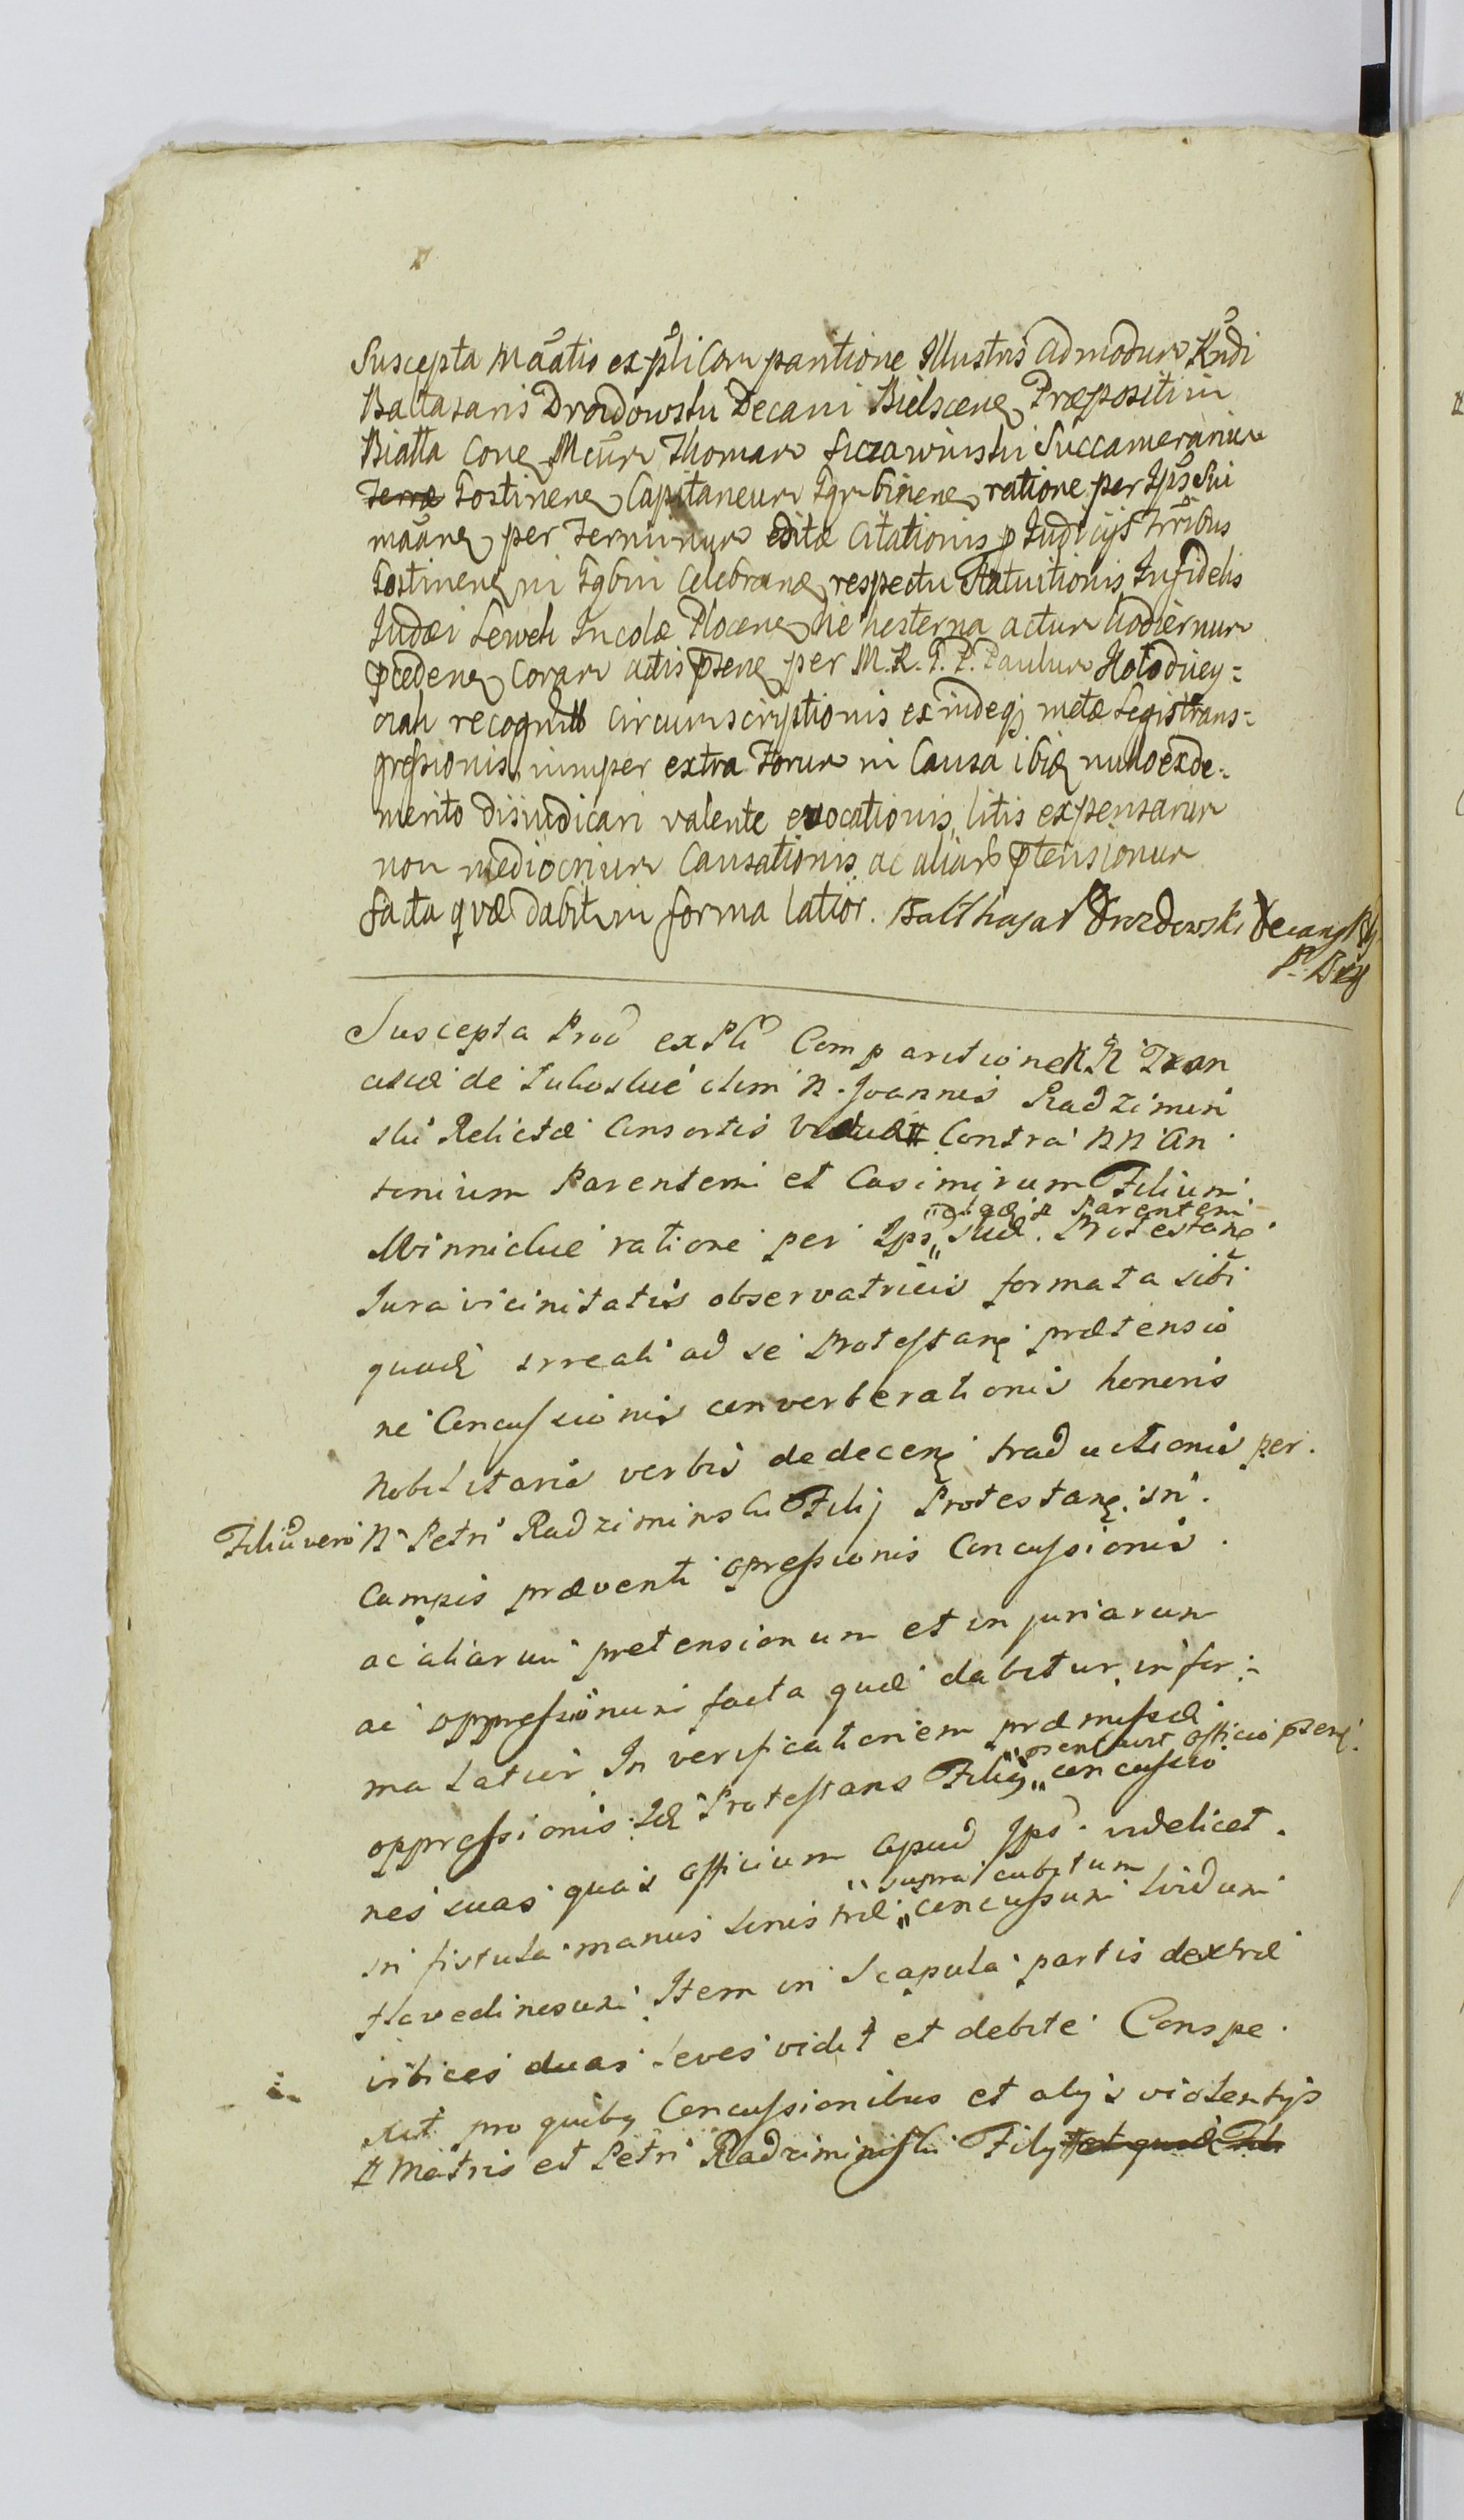 Suscepta Māātis ex pūli Comparitione Illustris admodum Rndi
Baltasaris Drozdowski Decani Bielscenę Præpositi in
Białła Conę Mcūm Thomam Szczawinski Succamerarium
Gostinenę Capitaneum Ggrbinenę ratione per Ips Sui
māānę per Terminum editæ Citationis p Judicijs Trribus
Gostinenę in Ggbin Celebranę respectu Statuitionis Infidelis
Judæi Lewek Incolæ Plocenę die hesterna actum hodiernum
pcedenę Coram actis psenę per M. R. G. P. Paulum Hołodniey=
ciah recognit Circumscriptionis exindeq metæ Legis trans=
gressionis, nimper extra Forum in Causa ibid nullo exde=
merito disiudicari valente evocationis, litis expensarum
non mediocrium Causationis ac aliar ptensionum
facta quæ dabit in forma latior. Balthasar Drozdowski Decang
Suscepta Prod ex Pli Comparitione N. N. Fran
ciscæ de olim N. Joannis Radzimin
ski Relictæ Consortis Viduæ # Contra NN An
tonium Parentem et Casimirum Filium
"Parentem
Minnickie ratione per Ips" suæ. Protestanę
Jura vicinitatis observatricis formata sibi
quad irreali ad se Protestanę prætensio
ne Concussionis converberationis honoris
Nobilitaris verbis dedecenę traductionis per
Filiū vero N Petri Radziminski Filij Protestanę in
Campis præventi opressionis Concussionis
ac aliarum pretensionum et injuriarum
ac oppressionum facta quæ dabitur in for=
ma Latior In verificationem præmissæ
officio psenę
oppressionis Id Protestans Filig" concussio
nes suas quas officium apud Ips videlicet
" supra cubitum
in fistula manus sinistræ" concussum lividum
flavedinosum Item in Scapula partis dextræ
vibices duas leves vidit et debite Conspe
xit pro quibg Concussionibus et alijs violentijs
# Matris et Petri Radziminski Filij et quæ